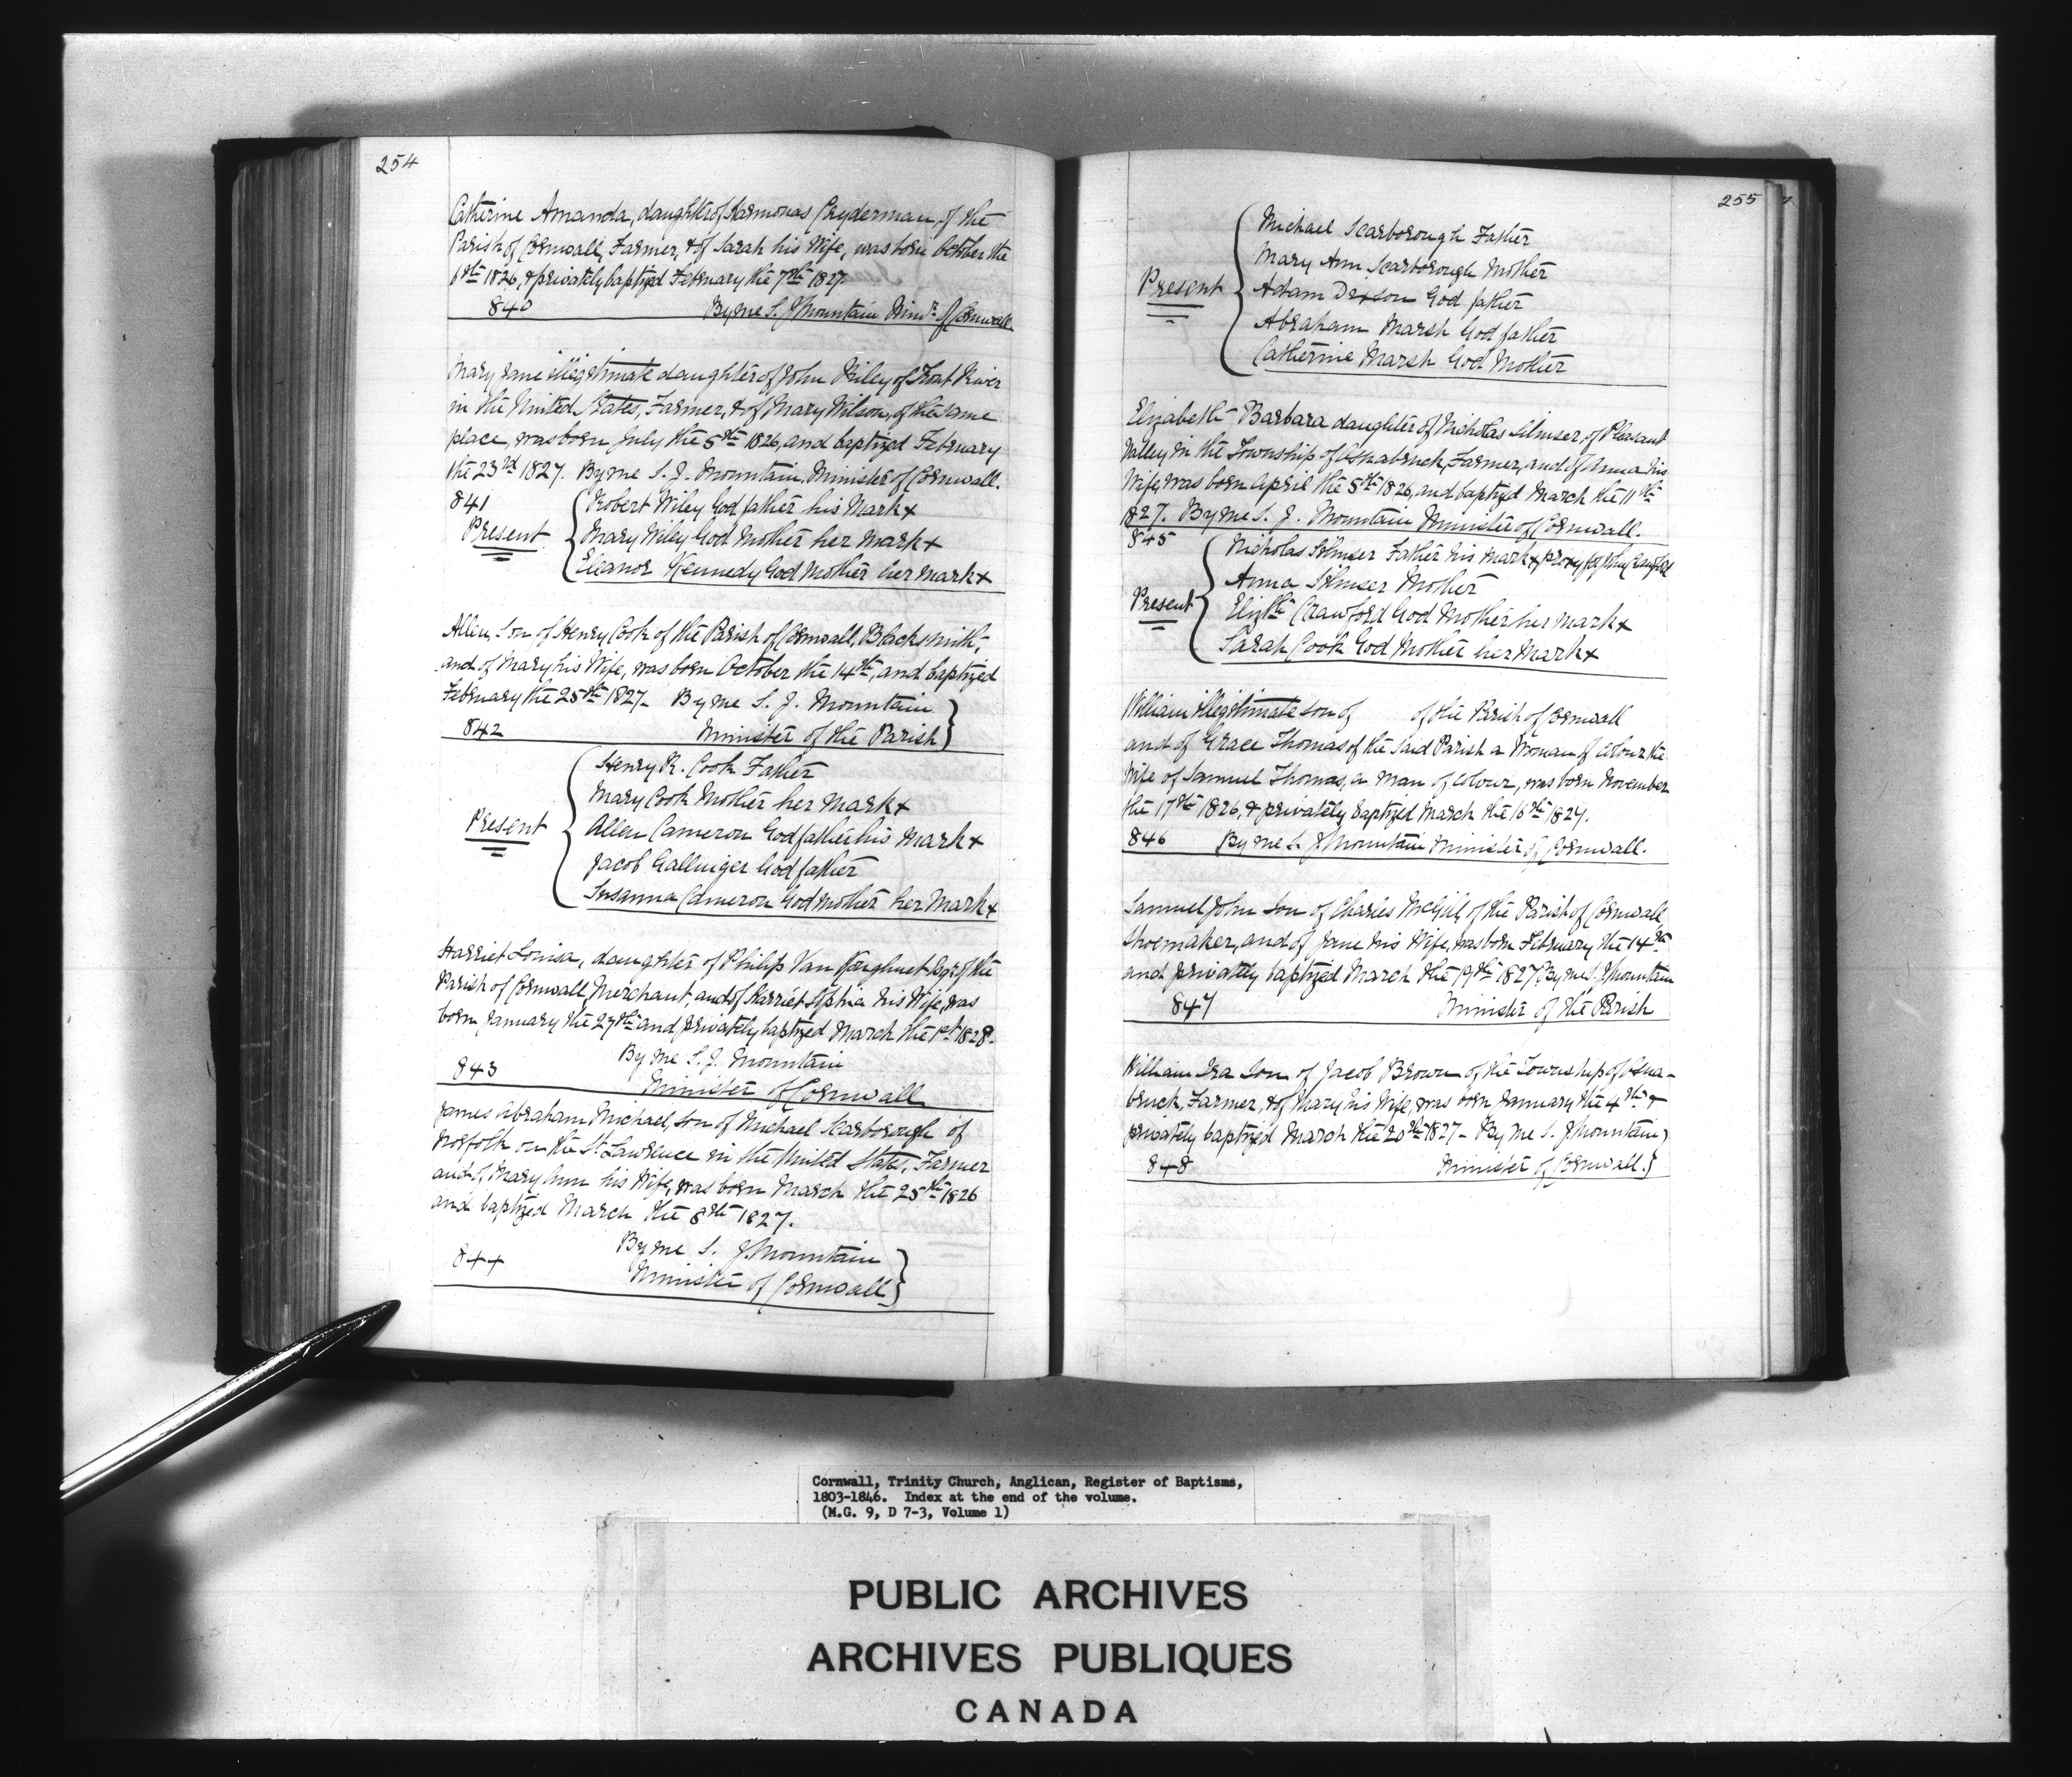 254
Catherine Amanda, daughter of Harmonas Cryderman, of the
Parish of Cornwall, Farmer, & of Sarah his Wife, was born October the
6th 1826, & privately baptized February the 7th 1827.
840 By me S. J Mountain Minr. of Cornwall
Mary Jane illegitimate daughter of John Wiley of Trout River
in the United States, Farmer, & of Mary Wilson, of the same
place, was born July the 5th 1826, and baptized February
the 23rd 1827. By me S. J. Mountain. Minister of Cornwall.
841 Robert Wiley God father his Mark x
Present Mary Wiley God Mother her Mark x
Eleanor Kennedy God Mother her mark x
Allen, Son of Henry Cook of the Parish of Cornwall, Blacksmith,
and of Mary his Wife, was born October the 14th, and baptized
February the 25th 1827. By me S. J. Mountain
842 Minister of the Parish
Henry R. Cook Father
Mary Cook Mother her Mark x
Present Allen Cameron God father his Mark x
Jacob Gallinger God father
Susanna Cameron God Mother her Mark x
Harriet Louisa, daughter of Philip Van Koughnet Esqr. of the
Parish of Cornwall, Merchant, and of Harriet Sophia his Wife, was
born January the 27th and privately baptized March the 1st 1828.
By me S. J. Mountain
843 Minister of Cornwall
James Abraham Michael, Son of Michael Scarborough of
Norfolk on the St. Lawrence in the United States, Farmer
and of Mary Ann his Wife, was born March the 25th 1826
and baptized March the 8th 1827.
By me S. J. Mountain
844 Minister of Cornwall
255
Michael Scarborough Father
Mary Ann Scarborough Mother
Present Adam Dixson God father
Abraham Marsh God father
Catherine Marsh God Mother
Elizabeth Barbara daughter of Nicholas Silmser, of Pleasant
Valley in the Township of Osnabruck, Farmer, and of Anna his
Wife, was born April the 5th 1826, and baptized March the 11th
1827. By me S. J. Mountain Minister of Cornwall.
845 Nicholas Silmser Father his mark x proxy for
Anna Silmser Mother
Present Elizth. Crawford God Mother her mark x
Sarah Cook God Mother her Mark x
William illegitimate son of of the Parish of Cornwall
and of Grace Thomas of the Said Parish a Woman of colour, the
Wife of Samuel Thomas, a man of Colour, was born November
the 17th 1826, & privately baptized March the 16th 1827.
846 By me S. J Mountain Minister of Cornwall.
Samuel John Son of Charles McGill, of the Parish of Cornwall
Shoemaker, and of Jane his Wife, was born February the 14th
and privately baptized March the 19th 1827. By me S. J Mountain
847 Minister of the Parish
William Ira Son of Jacob Brown of the Township of Osna-
bruck, Farmer, & of Mary his Wife, was born January the 4th &
privately baptized March the 20th 1827 - By me S. J Mountain
848 Minister of Cornwall.
Cornwall, Trinity Church, Anglican, Register of Baptisms,
1803-1846. Index at the end of the volume.
(M.G. 9, D 7-3, Volume 1)
PUBLIC ARCHIVES
ARCHIVES PUBLIQUES
CANADA